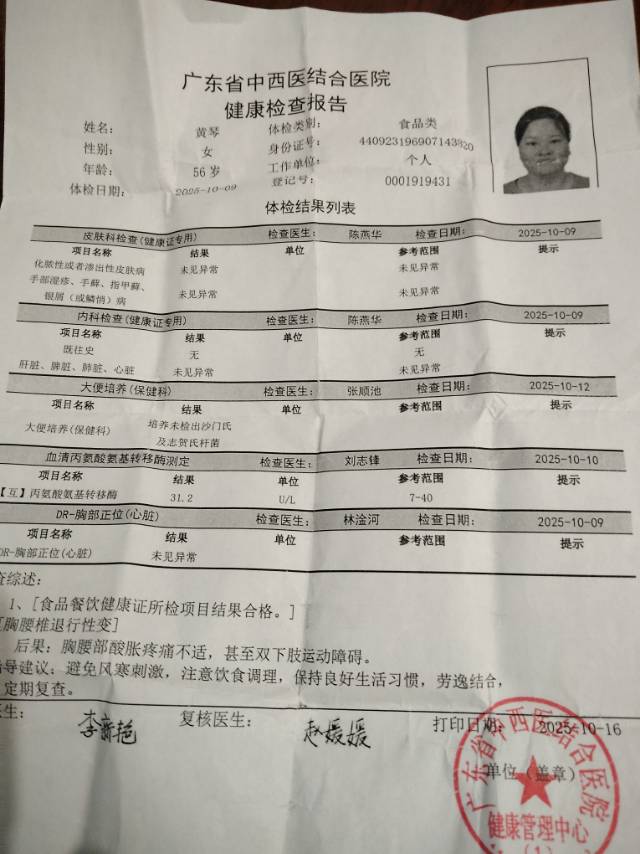 广东省中西医结合医院
健康检查报告
姓名： 黄琴 体检类别： 食品类
性别： 女 身份证号： 440923196907143820
年龄： 56 岁 工作单位： 个人
体检日期： 2025-10-09 登记号： 0001919431
体检结果列表
皮肤科检查(健康证专用) 检查医生： 陈燕华 检查日期： 2025-10-09
项目名称 结果 单位 参考范围 提示
化脓性或者渗出性皮肤病 未见异常 未见异常
手部湿疹、手藓、指甲藓、
银屑（或鳞悄）病 未见异常 未见异常
内科检查(健康证专用) 检查医生： 陈燕华 检查日期： 2025-10-09
项目名称 结果 单位 参考范围 提示
既往史 无 无
肝脏、脾脏、肺脏、心脏 未见异常 未见异常
大便培养(保健科) 检查医生： 张顺池 检查日期： 2025-10-12
项目名称 结果 单位 参考范围 提示
大便培养(保健科) 培养未检出沙门氏
及志贺氏秆菌
血清丙氨酸氨基转移酶测定 检查医生： 刘志锋 检查日期： 2025-10-10
项目名称 结果 单位 参考范围 提示
【互】丙氨酸氨基转移酶 31.2 U/L 7-40
DR-胸部正位(心脏) 检查医生： 林淦河 检查日期： 2025-10-09
项目名称 结果 单位 参考范围 提示
DR-胸部正位(心脏) 未见异常
查综述：
1、[食品餐饮健康证所检项目结果合格。]
[胸腰椎退行性变]
后果：胸腰部酸胀疼痛不适，甚至双下肢运动障碍。
指导建议：避免风寒刺激，注意饮食调理，保持良好生活习惯，劳逸结合，
定期复查。
医生： 复核医生： 赵媛媛 打印日期： 2025-10-16
单位（盖章）
广东省中西医结合医院
健康管理中心
(1)